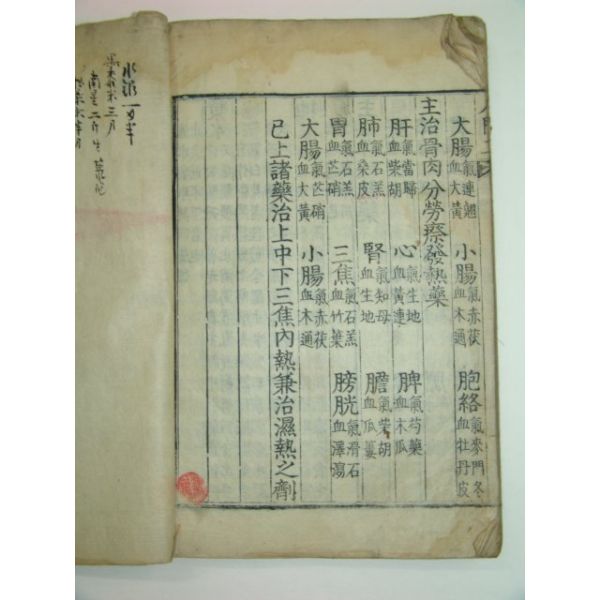 大腸 氣連翹 血大黃 小腸 氣赤茯 血木通 胞絡 氣麥門冬 血牡丹皮
主治骨肉分勞瘵發熱藥
肝 氣當歸 血柴胡 心 氣生地 血黃連 脾 氣芍藥 血木瓜
肺 氣石羔 血桑皮 腎 氣知母 血生地 膽 氣柴胡 血瓜蔞
胃 氣石羔 血芒硝 三焦 氣石羔 血竹葉 膀胱 氣滑石 血澤瀉
大腸 氣芒硝 血大黃 小腸 氣赤茯 血木通
已上諸藥治上中下三焦內熱兼治濕熱之劑